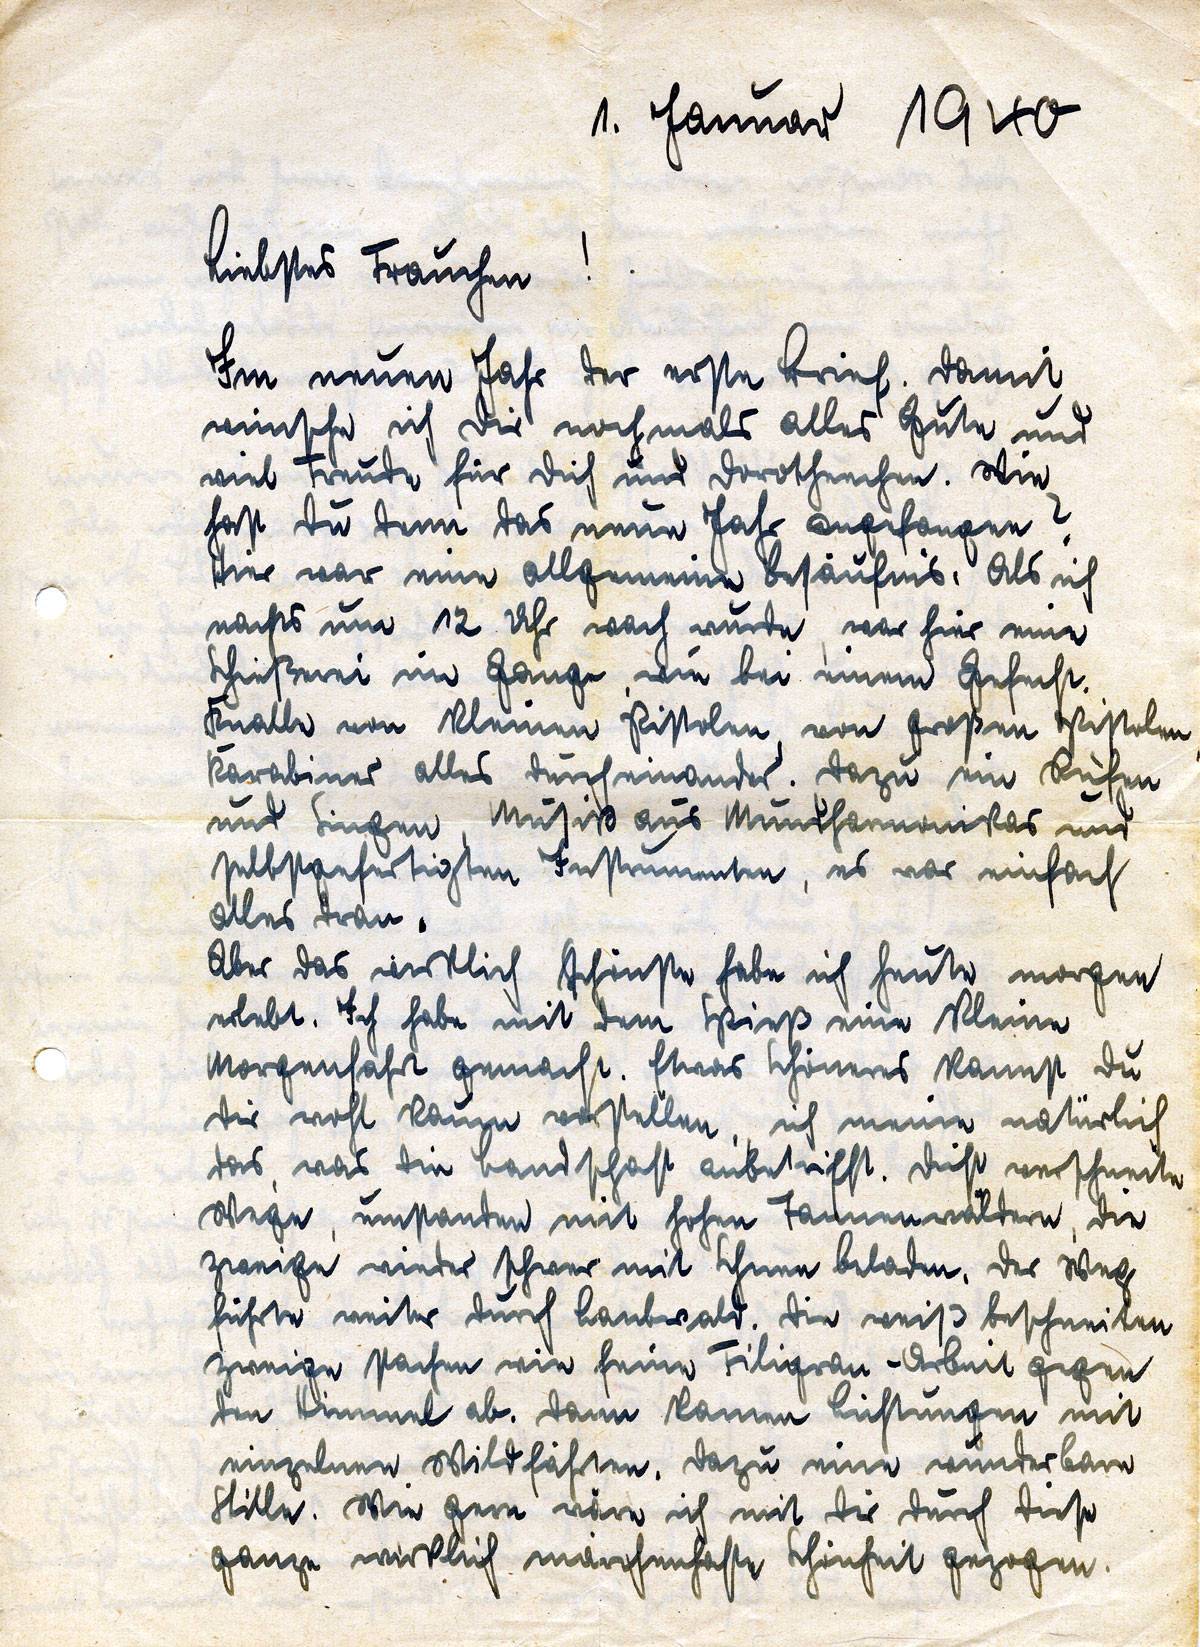 1. Januar 1940
Liebstes Frauchen!
Im neuen Jahr der erste Brief. Damit
wünsche ich Dir nochmals alles Gute und
viel Freude für Dich und Dorotheechen. Wie
hast Du denn das neue Jahr angefangen?
Hier war eine allgemeine Besäufnis. Als ich
nachts um 12 Uhr wach wurde, war hier eine
Schießerei im Gange, wie bei einem Gefecht.
Knalle von kleinen Pistolen, von großen Pistolen,
Karabiner alles durcheinander. Dazu ein Rufen
und Singen, Musik aus Mundharmonikas und
selbstgefertigten Instrumenten, es war einfach
alles dran.
Aber das wirklich Schönste habe ich heute morgen
erlebt. Ich habe mit dem Spieß eine kleine
Morgenfahrt gemacht. Etwas Schöneres kannst Du
Dir wohl kaum vorstellen, ich meine natürlich
das, was die Landschaft anbetrifft. Dicht verschneite
Wege, umstanden mit hohen Tannenwäldern, die
Zweige wieder schwer mit Schnee beladen. Der Weg
führte weiter durch Laubwald. Die weiß beschneiten
Zweige stachen wie feine Filigran-Arbeit gegen
den Himmel ab. Dann kamen Lichtungen mit
einzelnen Wildfährten. Dazu eine wunderbare
Stille. Wie gern wäre ich mit Dir durch diese
ganze wirklich märchenhafte Schönheit gezogen.